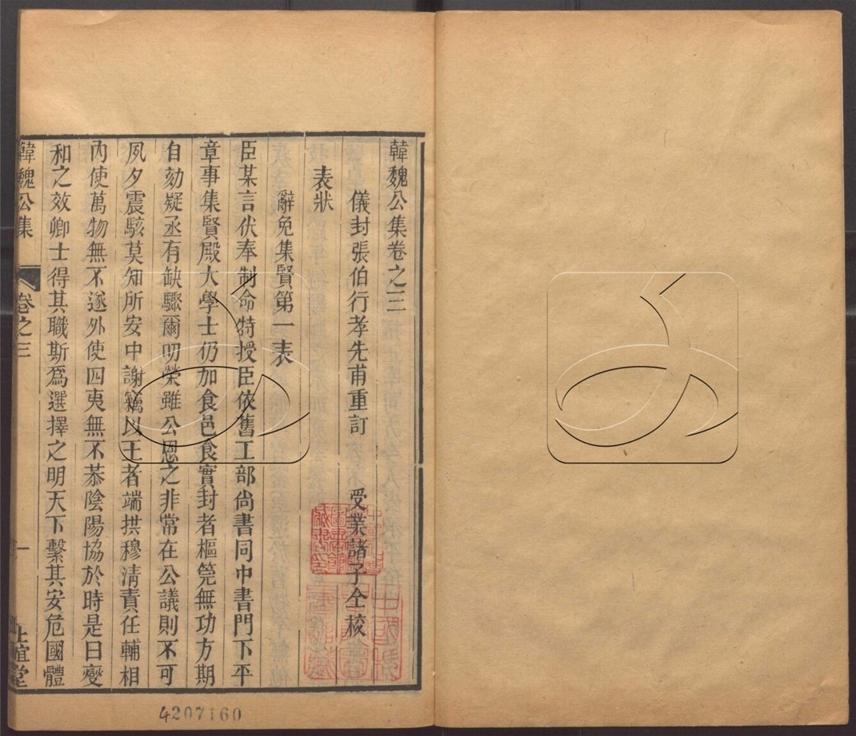 韓魏公集卷之三
儀封張伯行孝先甫重訂 受業諸子仝校
表狀
辭免集賢第一表
臣某言伏奉制命特授臣依舊工部尚書同中書門下平
章事集賢殿大學士仍加食邑食實封者樞筦無功方期
自劾疑丞有缺驟爾叨榮雖公恩之非常在公議則不可
夙夕震駭莫知所安中謝竊以王者端拱穆清責任輔相
內使萬物無不遂外使四夷無不恭陰陽協於時是曰燮
和之效卿士得其職斯爲選擇之明天下繫其安危國體
韓魏公集 卷之三 一 正誼堂
4207160